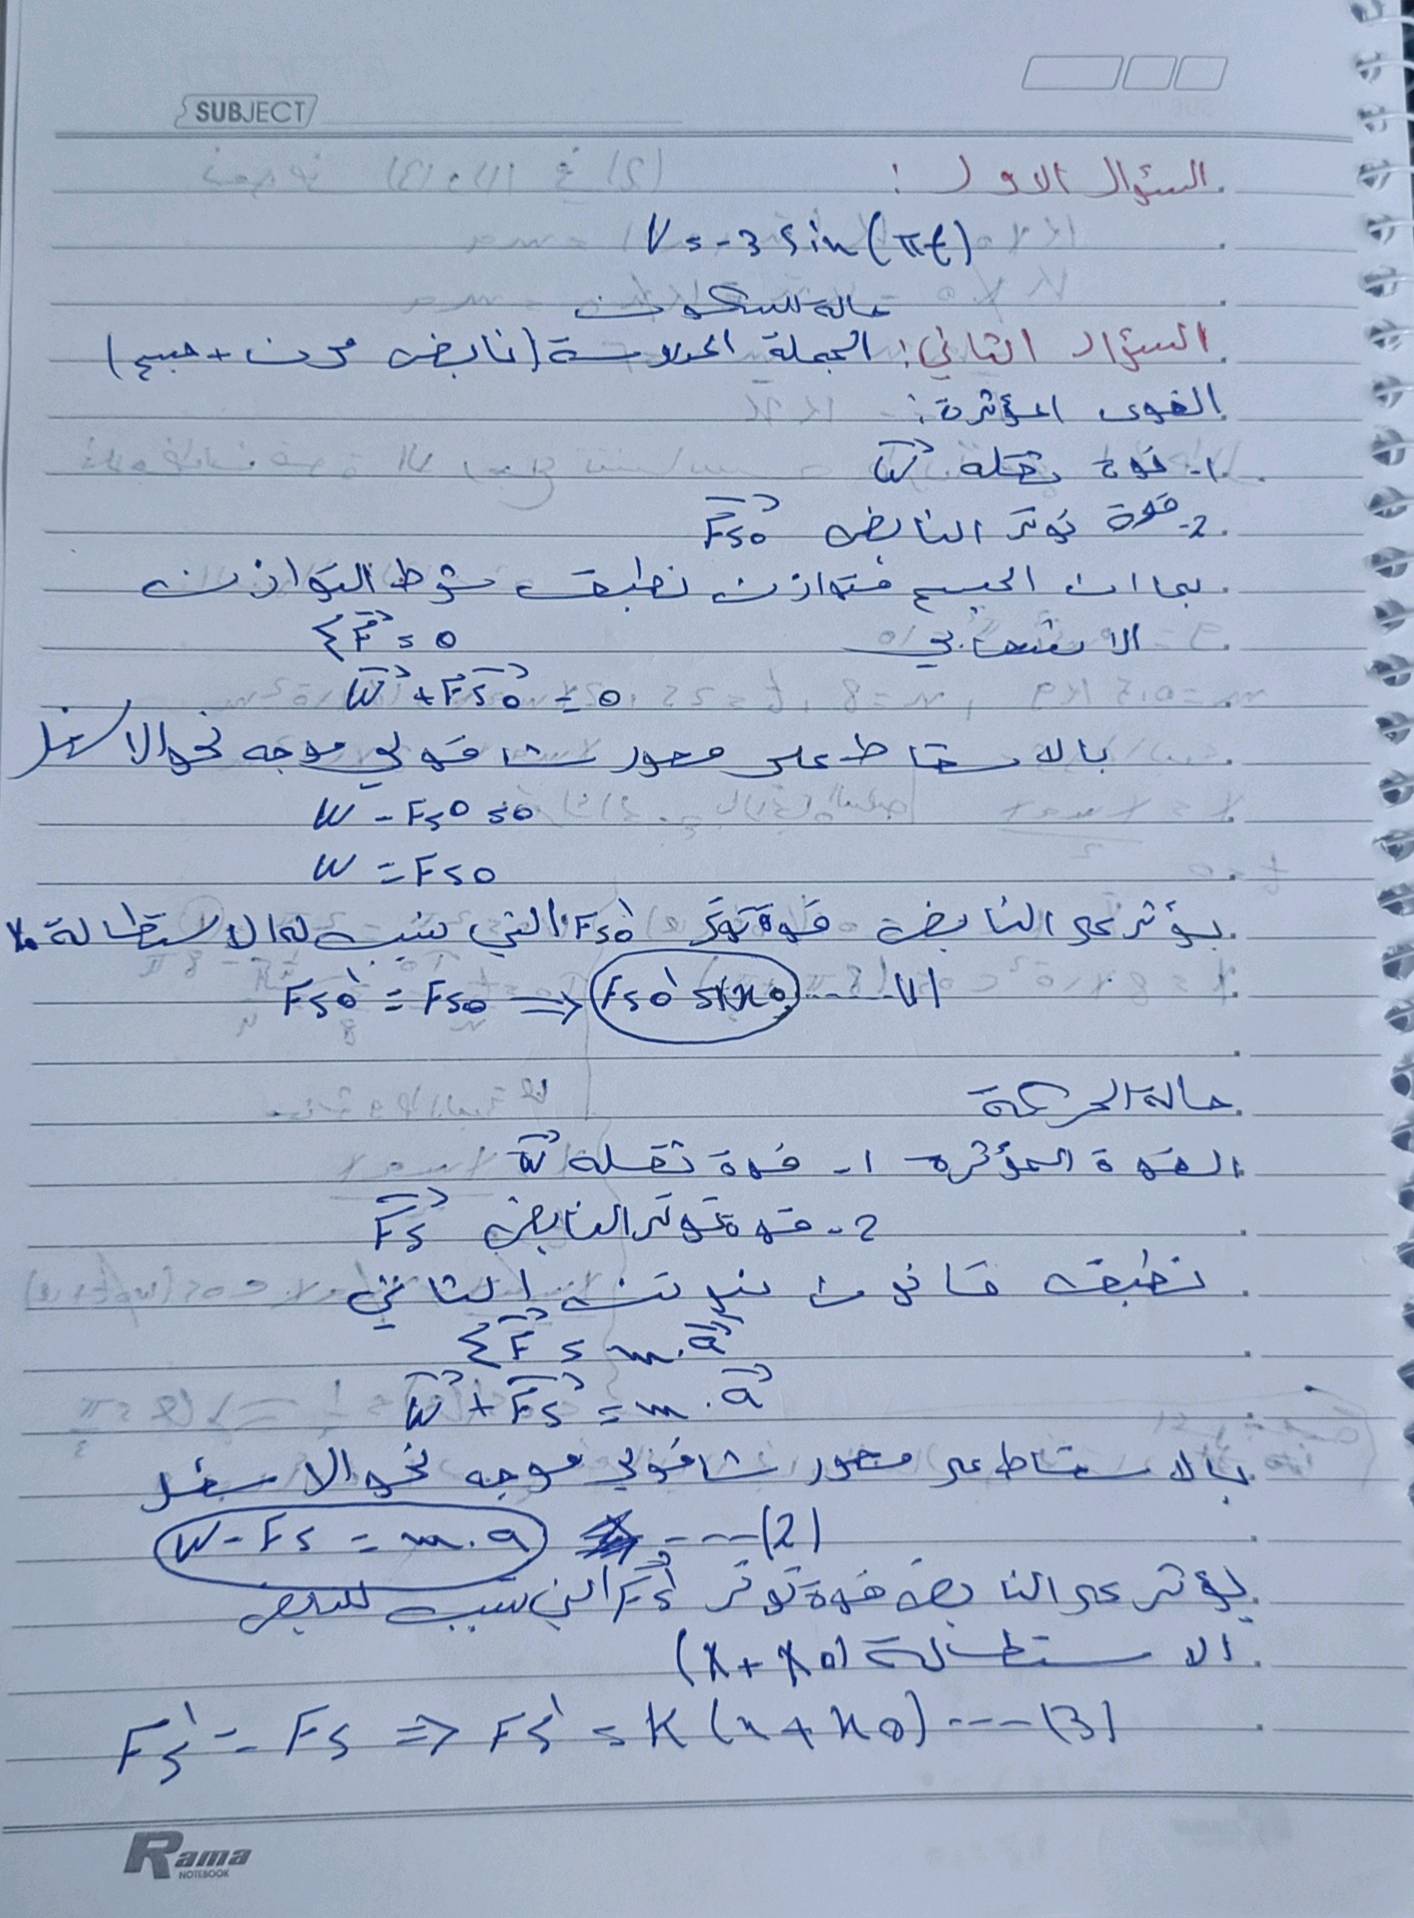 SUBJECT
السؤال الاول :
V = -3 sin(πt)
حالة السكون
السؤال الثاني: الجملة المدروسة (نابض مرن + جسم)
القوى المؤثرة :-
1- قوة ثقله W
2- قوة توتر النابض Fs0
بما ان الجسم متوازن نطبق شرط التوازن
الانسحابي ΣF = 0
W + Fs0 = 0
بالاسقاط على محور شاقولي موجه نحو الاسفل
W - Fs0 = 0
W = Fs0
يؤثر على النابض قوة توتر Fs0' التي تسبب له الاستطالة x0
Fs0' = Fs0 ⇒ Fs0' = kx0 ----- (1)
حالة الحركة
القوة المؤثرة 1- قوة ثقله W
2- قوة توتر النابض Fs
نطبق قانون نيوتن الثاني
ΣF = m.a
W + Fs = m.a
بالاسقاط على محور شاقولي موجه نحو الاسفل
W - Fs = m.a ---- (2)
يؤثر على النابض قوة توتر Fs' التي تسبب للنابض
الاستطالة (x + x0)
Fs' = Fs ⇒ Fs' = K (x + x0) ---- (3)
Rama
NOTEBOOK